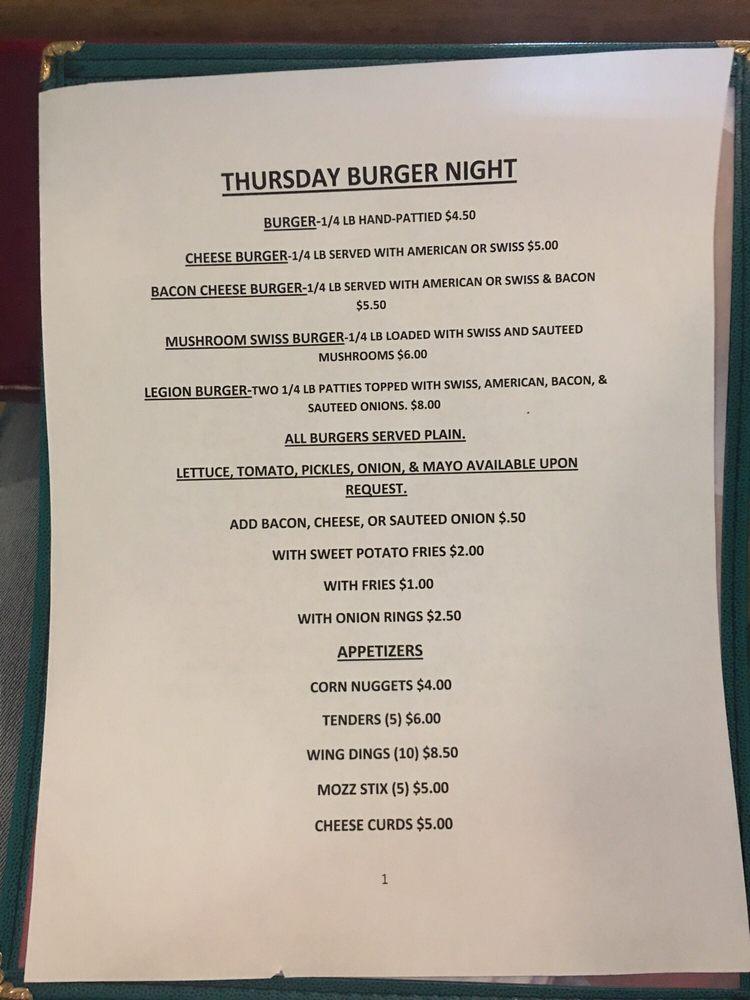 THURSDAY BURGER NIGHT
BURGER-1/4 LB HAND-PATTIED $4.50
CHEESE BURGER-1/4 LB SERVED WITH AMERICAN OR SWISS $5.00
BACON CHEESE BURGER-1/4 LB SERVED WITH AMERICAN OR SWISS & BACON
$5.50
MUSHROOM SWISS BURGER-1/4 LB LOADED WITH SWISS AND SAUTEED
MUSHROOMS $6.00
LEGION BURGER-TWO 1/4 LB PATTIES TOPPED WITH SWISS, AMERICAN, BACON, &
SAUTEED ONIONS. $8.00
ALL BURGERS SERVED PLAIN.
LETTUCE, TOMATO, PICKLES, ONION, & MAYO AVAILABLE UPON
REQUEST.
ADD BACON, CHEESE, OR SAUTEED ONION $.50
WITH SWEET POTATO FRIES $2.00
WITH FRIES $1.00
WITH ONION RINGS $2.50
APPETIZERS
CORN NUGGETS $4.00
TENDERS (5) $6.00
WING DINGS (10) $8.50
MOZZ STIX (5) $5.00
CHEESE CURDS $5.00
1